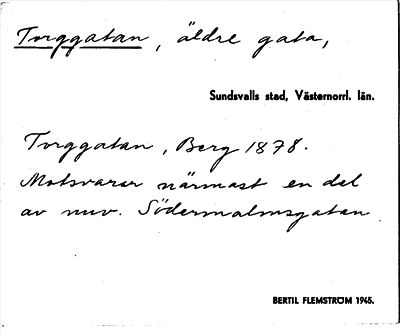 Torggatan, äldre gata,
Sundsvalls stad, Västernorrl. län.
Torggatan, Berg 1878.
Motsvarar närmast en del
av nuv. Södermalmsgatan
BERTIL FLEMSTRÖM 1945.